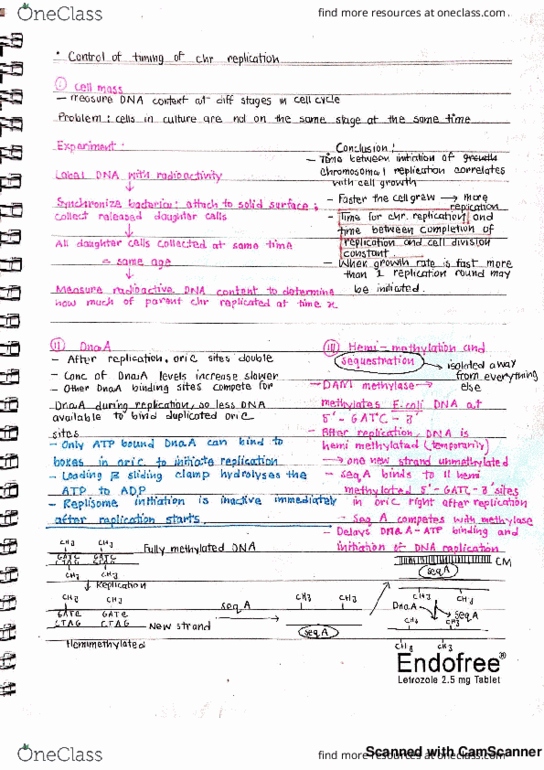 OneClass
find more resources at oneclass.com
• Control of timing of chr replication
(i) Cell mass
– Measure DNA content at diff stages in cell cycle
Problem : cells in culture are not on the same stage at the same time
Experiment :
Label DNA with radioactivity
↓
Synchronize bacteria : attach to solid surface ;
collect released daughter cells
↓
All daughter cells collected at same time
= same age
↓
Measure radioactive DNA content to determine
how much of parent chr replicated at time x
Conclusion :
– Time between initiation of growth
chromosomal replication correlates
with cell growth
– Faster the cell grow → more
replication
– Time for chr. replication, and
time between completion of
replication and cell division
constant.
– When growth rate is fast more
than 1 replication round may
be initiated.
(ii) DnaA
– After replication, oriC sites double
– Conc of DnaA levels increase slower
– Other DnaA binding sites compete for
DnaA during replication, so less DNA
available to bind duplicated oriC
sites
– Only ATP bound DnaA can bind to
boxes in oriC to initiate replication
– Loading β sliding clamp hydrolyses the
ATP to ADP
– Replisome initiation is inactive immediately
after replication starts
(iii) Hemi-methylation and
sequestration → isolated away
from everything
else
– DAM methylase →
methylates E.coli DNA at
5'-GATC-3'
– After replication, DNA is
hemi methylated (temporarily)
→ one new strand unmethylated
– seqA binds to 11 hemi
methylated 5'-GATC-3' sites
in oriC right after replication
– Seq A competes with methylase
– Delays DNAA-ATP binding and
initiation of DNA replication
CH3 CH3
GATC GATC
CTAG CTAG
CH3 CH3
Fully methylated DNA
↓ Replication
CH3 CH3
GATC GATC
CTAG CTAG
New strand
Hemimethylated
seqA
CH3 CH3
seqA
CM
seqA
CH3 CH3
DnaA
seqA
CH3 CH3
CH3 CH3
Endofree®
Letrozole 2.5 mg Tablet
OneClass
find more resources at oneclass.com
Scanned with CamScanner